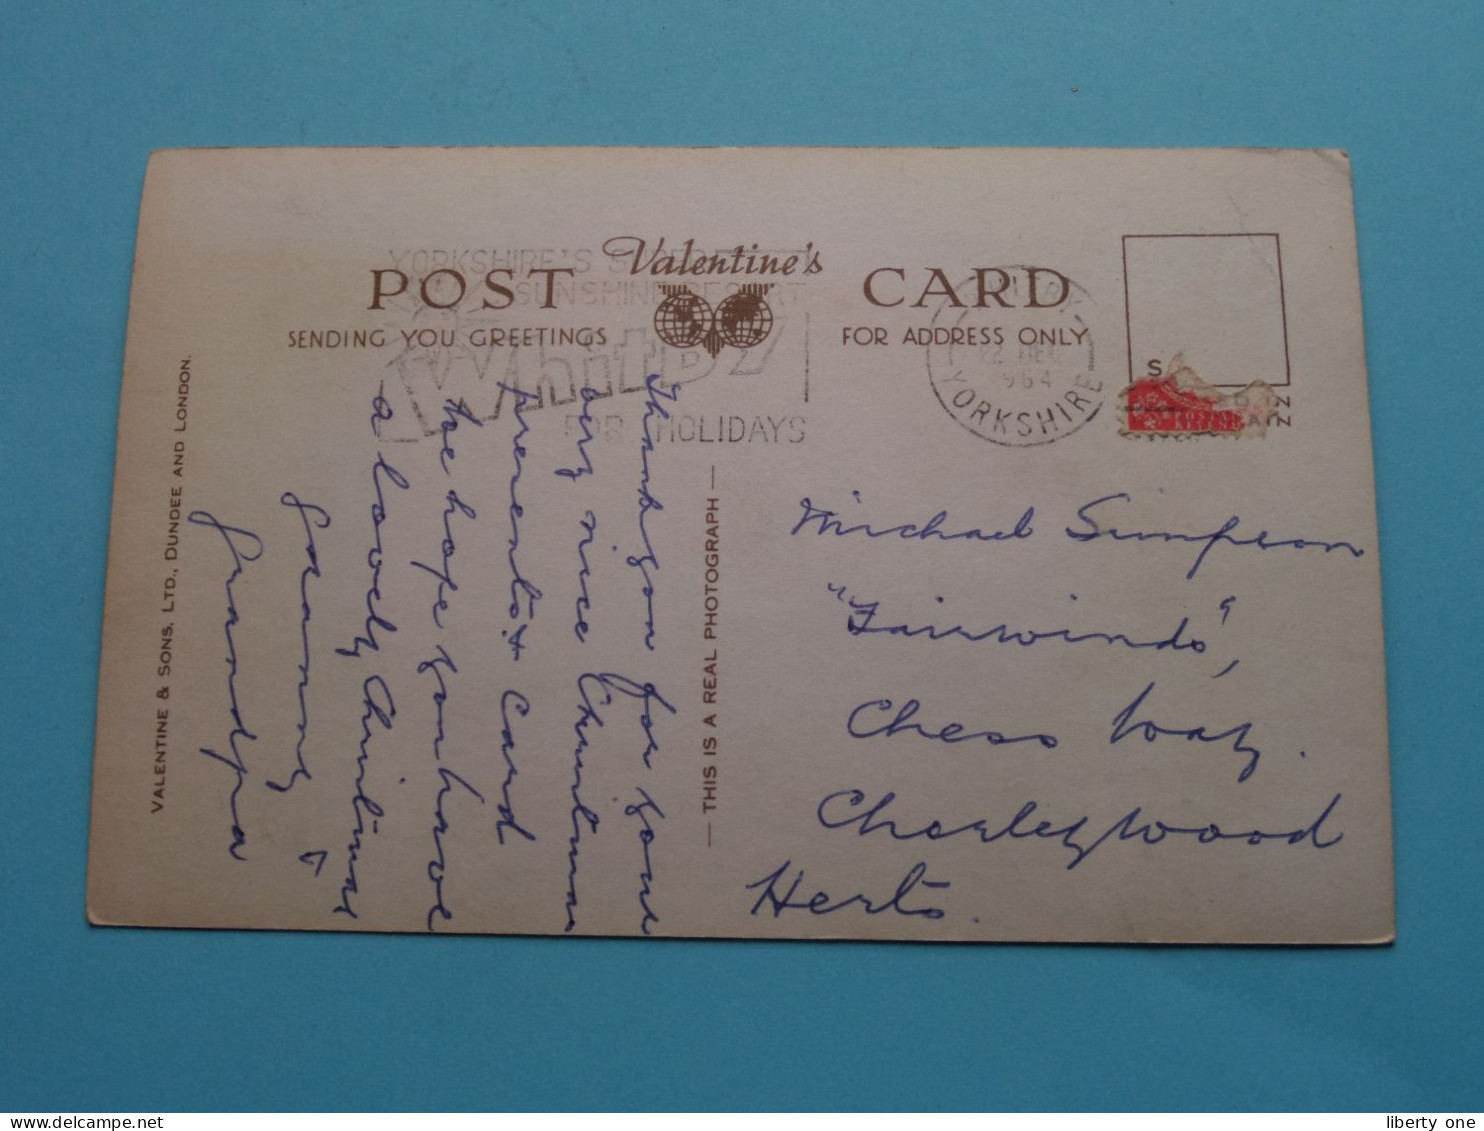 YORKSHIRE'S
SUNSHINE RESORT
Whitby
FOR HOLIDAYS
Valentine's
POST CARD
SENDING YOU GREETINGS
FOR ADDRESS ONLY
22 DEC
964
YORKSHIRE
S
VALENTINE & SONS, LTD., DUNDEE AND LONDON.
THIS IS A REAL PHOTOGRAPH
Thank you for your
very nice Christmas
presents & Card
We hope you have
a lovely Christmas
Granny &
Grandpa
Michael Simpson
"Fairwinds",
Chess Way.
Chorleywood
Herts.
liberty one